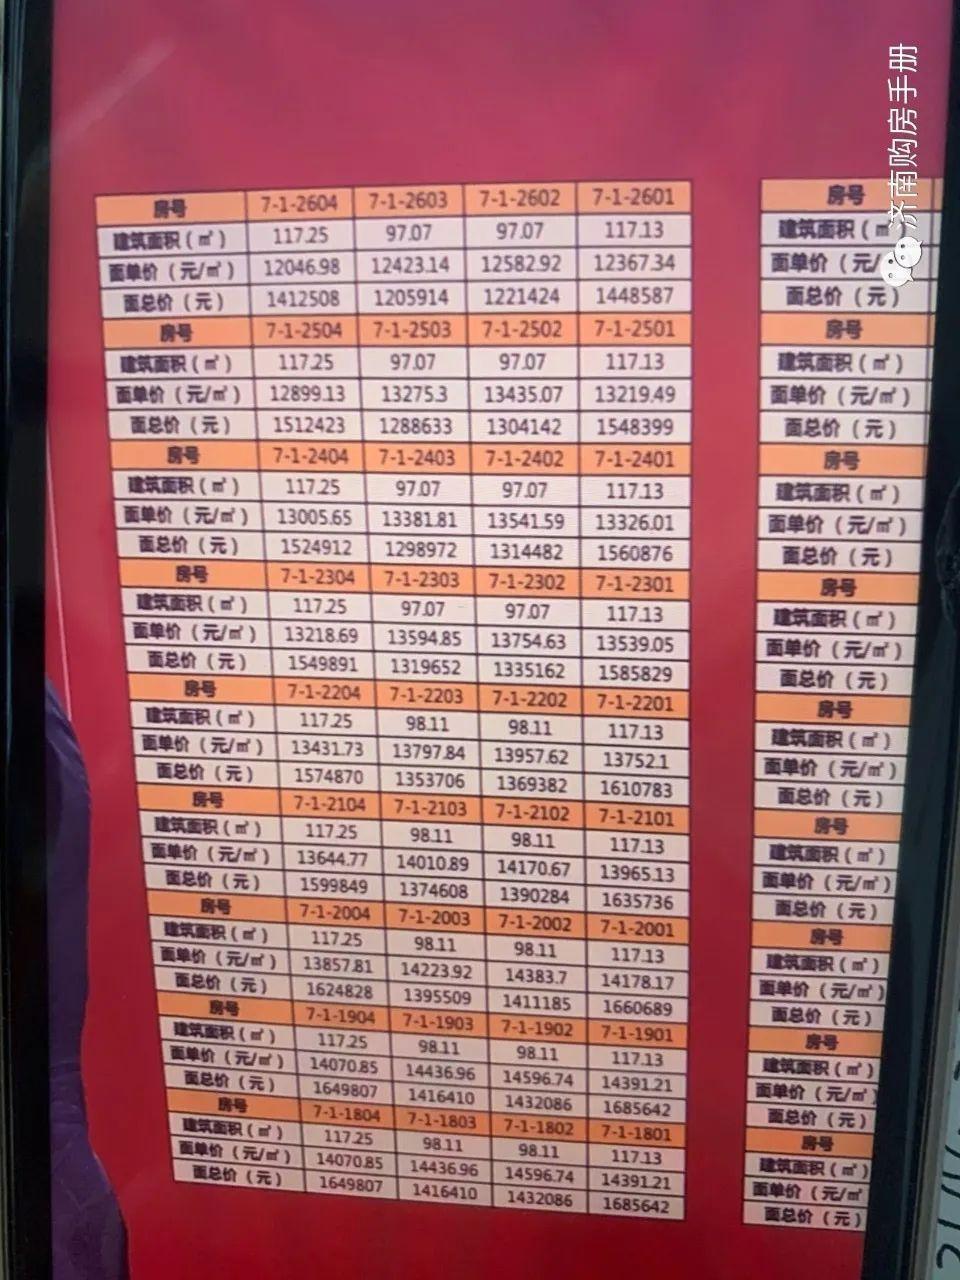 房号 7-1-2604 7-1-2603 7-1-2602 7-1-2601
建筑面积(㎡) 117.25 97.07 97.07 117.13
面单价(元/㎡) 12046.98 12423.14 12582.92 12367.34
面总价(元) 1412508 1205914 1221424 1448587
房号 7-1-2504 7-1-2503 7-1-2502 7-1-2501
建筑面积(㎡) 117.25 97.07 97.07 117.13
面单价(元/㎡) 12899.13 13275.3 13435.07 13219.49
面总价(元) 1512423 1288633 1304142 1548399
房号 7-1-2404 7-1-2403 7-1-2402 7-1-2401
建筑面积(㎡) 117.25 97.07 97.07 117.13
面单价(元/㎡) 13005.65 13381.81 13541.59 13326.01
面总价(元) 1524912 1298972 1314482 1560876
房号 7-1-2304 7-1-2303 7-1-2302 7-1-2301
建筑面积(㎡) 117.25 97.07 97.07 117.13
面单价(元/㎡) 13218.69 13594.85 13754.63 13539.05
面总价(元) 1549891 1319652 1335162 1585829
房号 7-1-2204 7-1-2203 7-1-2202 7-1-2201
建筑面积(㎡) 117.25 98.11 98.11 117.13
面单价(元/㎡) 13431.73 13797.84 13957.62 13752.1
面总价(元) 1574870 1353706 1369382 1610783
房号 7-1-2104 7-1-2103 7-1-2102 7-1-2101
建筑面积(㎡) 117.25 98.11 98.11 117.13
面单价(元/㎡) 13644.77 14010.89 14170.67 13965.13
面总价(元) 1599849 1374608 1390284 1635736
房号 7-1-2004 7-1-2003 7-1-2002 7-1-2001
建筑面积(㎡) 117.25 98.11 98.11 117.13
面单价(元/㎡) 13857.81 14223.92 14383.7 14178.17
面总价(元) 1624828 1395509 1411185 1660689
房号 7-1-1904 7-1-1903 7-1-1902 7-1-1901
建筑面积(㎡) 117.25 98.11 98.11 117.13
面单价(元/㎡) 14070.85 14436.96 14596.74 14391.21
面总价(元) 1649807 1416410 1432086 1685642
房号 7-1-1804 7-1-1803 7-1-1802 7-1-1801
建筑面积(㎡) 117.25 98.11 98.11 117.13
面单价(元/㎡) 14070.85 14436.96 14596.74 14391.21
面总价(元) 1649807 1416410 1432086 1685642
房号
建筑面积(㎡
面单价(元/
面总价(元)
房号
建筑面积(㎡)
面单价(元/㎡)
面总价(元)
房号
建筑面积(㎡)
面单价(元/㎡)
面总价(元)
房号
建筑面积(㎡)
面单价(元/㎡)
面总价(元)
房号
建筑面积(㎡)
面单价(元/㎡)
面总价(元)
房号
建筑面积(㎡)
面单价(元/㎡)
面总价(元)
房号
建筑面积(㎡)
面单价(元/㎡)
面总价(元)
房号
建筑面积(㎡)
面单价(元/㎡)
面总价(元)
房号
建筑面积(㎡)
面单价(元/㎡
面总价(元)
济南购房手册